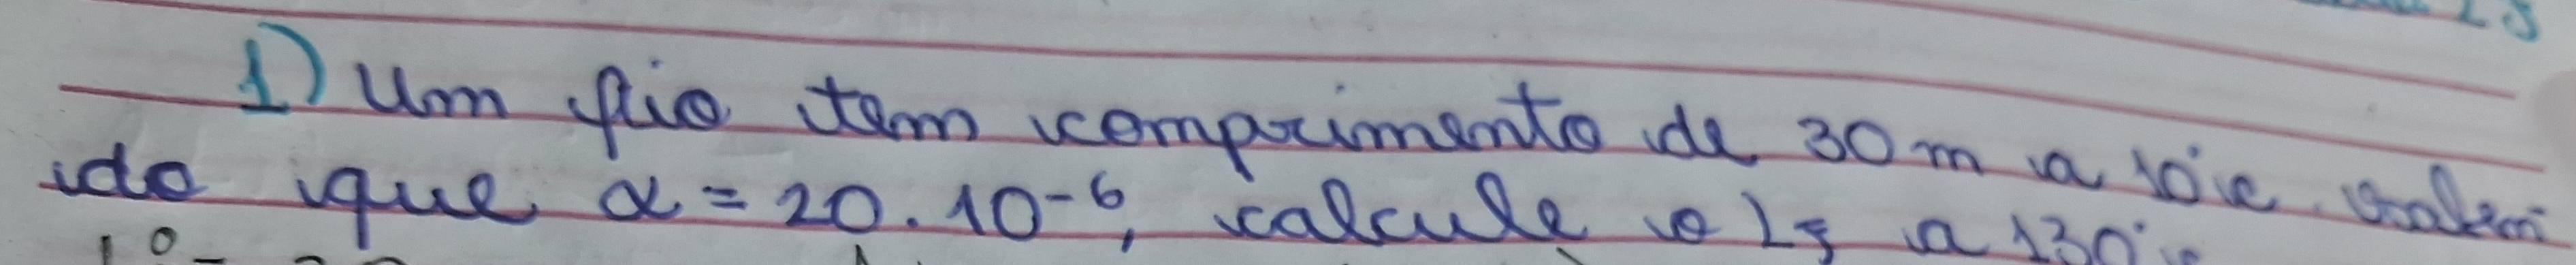 1) Um fio tem comprimento de 30 m a 10°c. saben
do que α = 20 . 10⁻⁶, calcule o Lf a 130°c